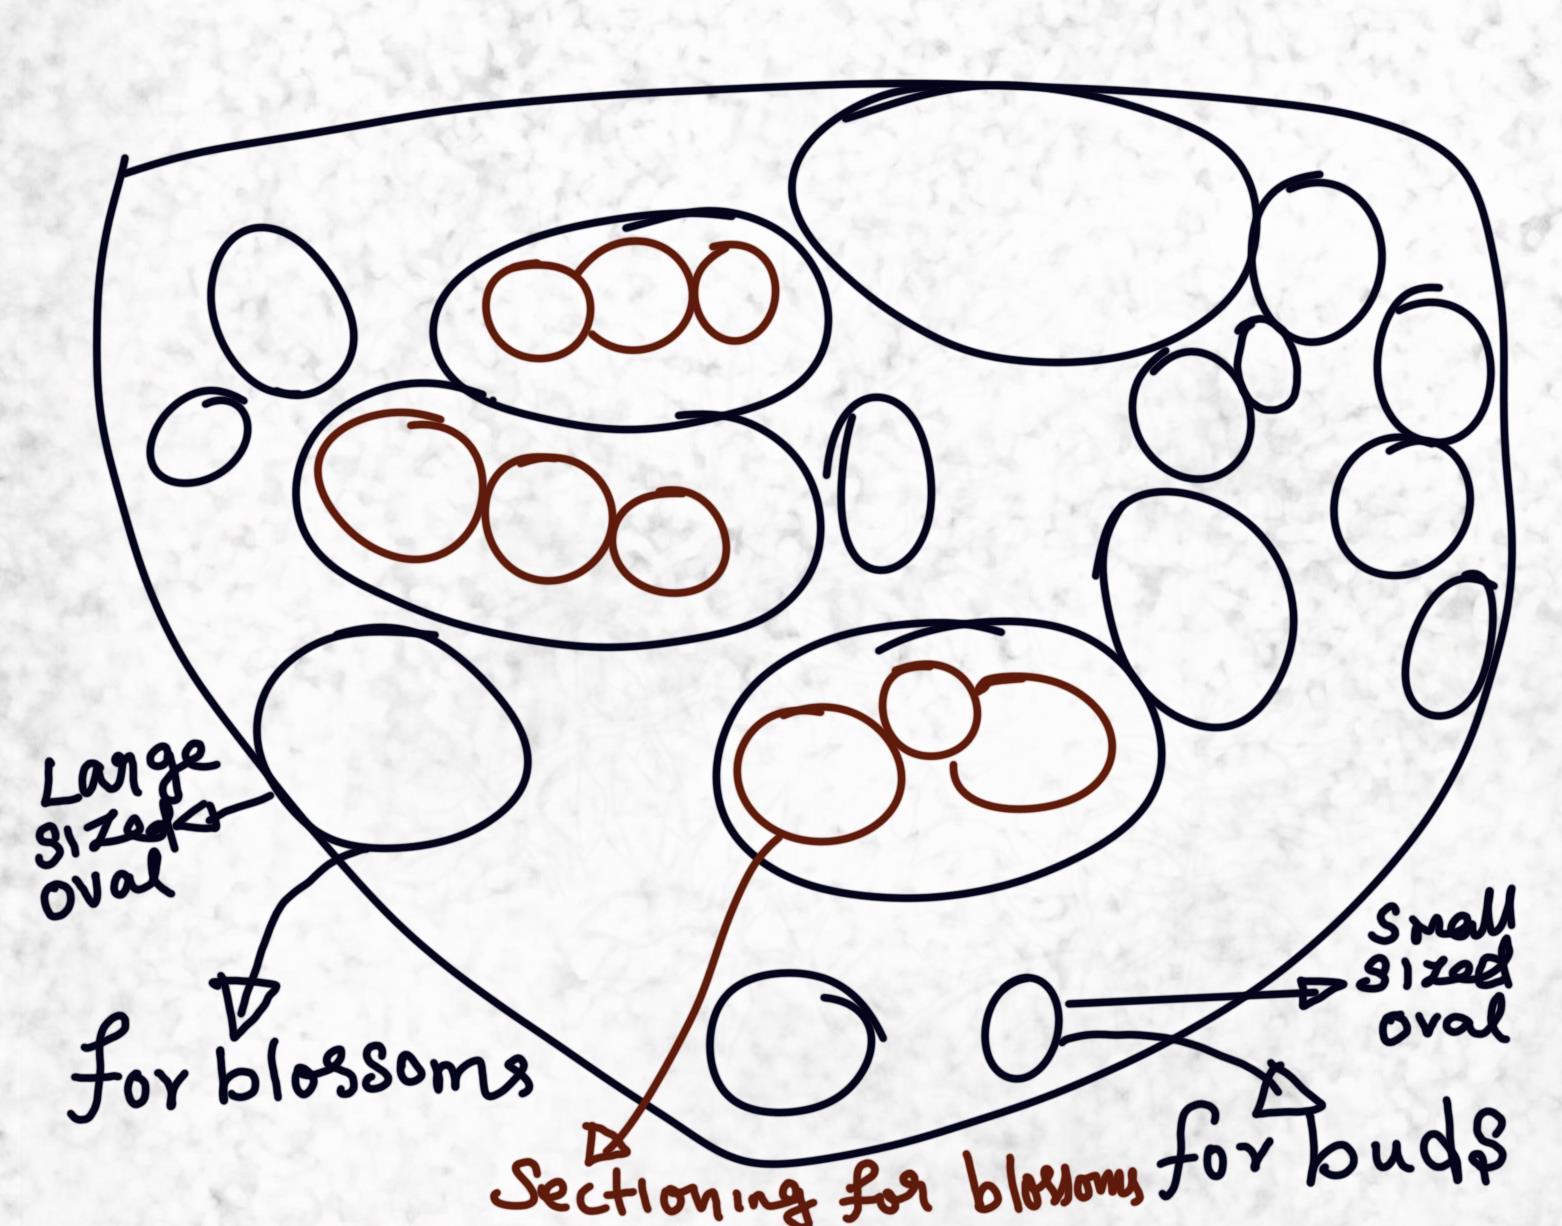 Large
sized
oval
for blossoms
Sectioning for blossoms
small
sized
oval
for buds